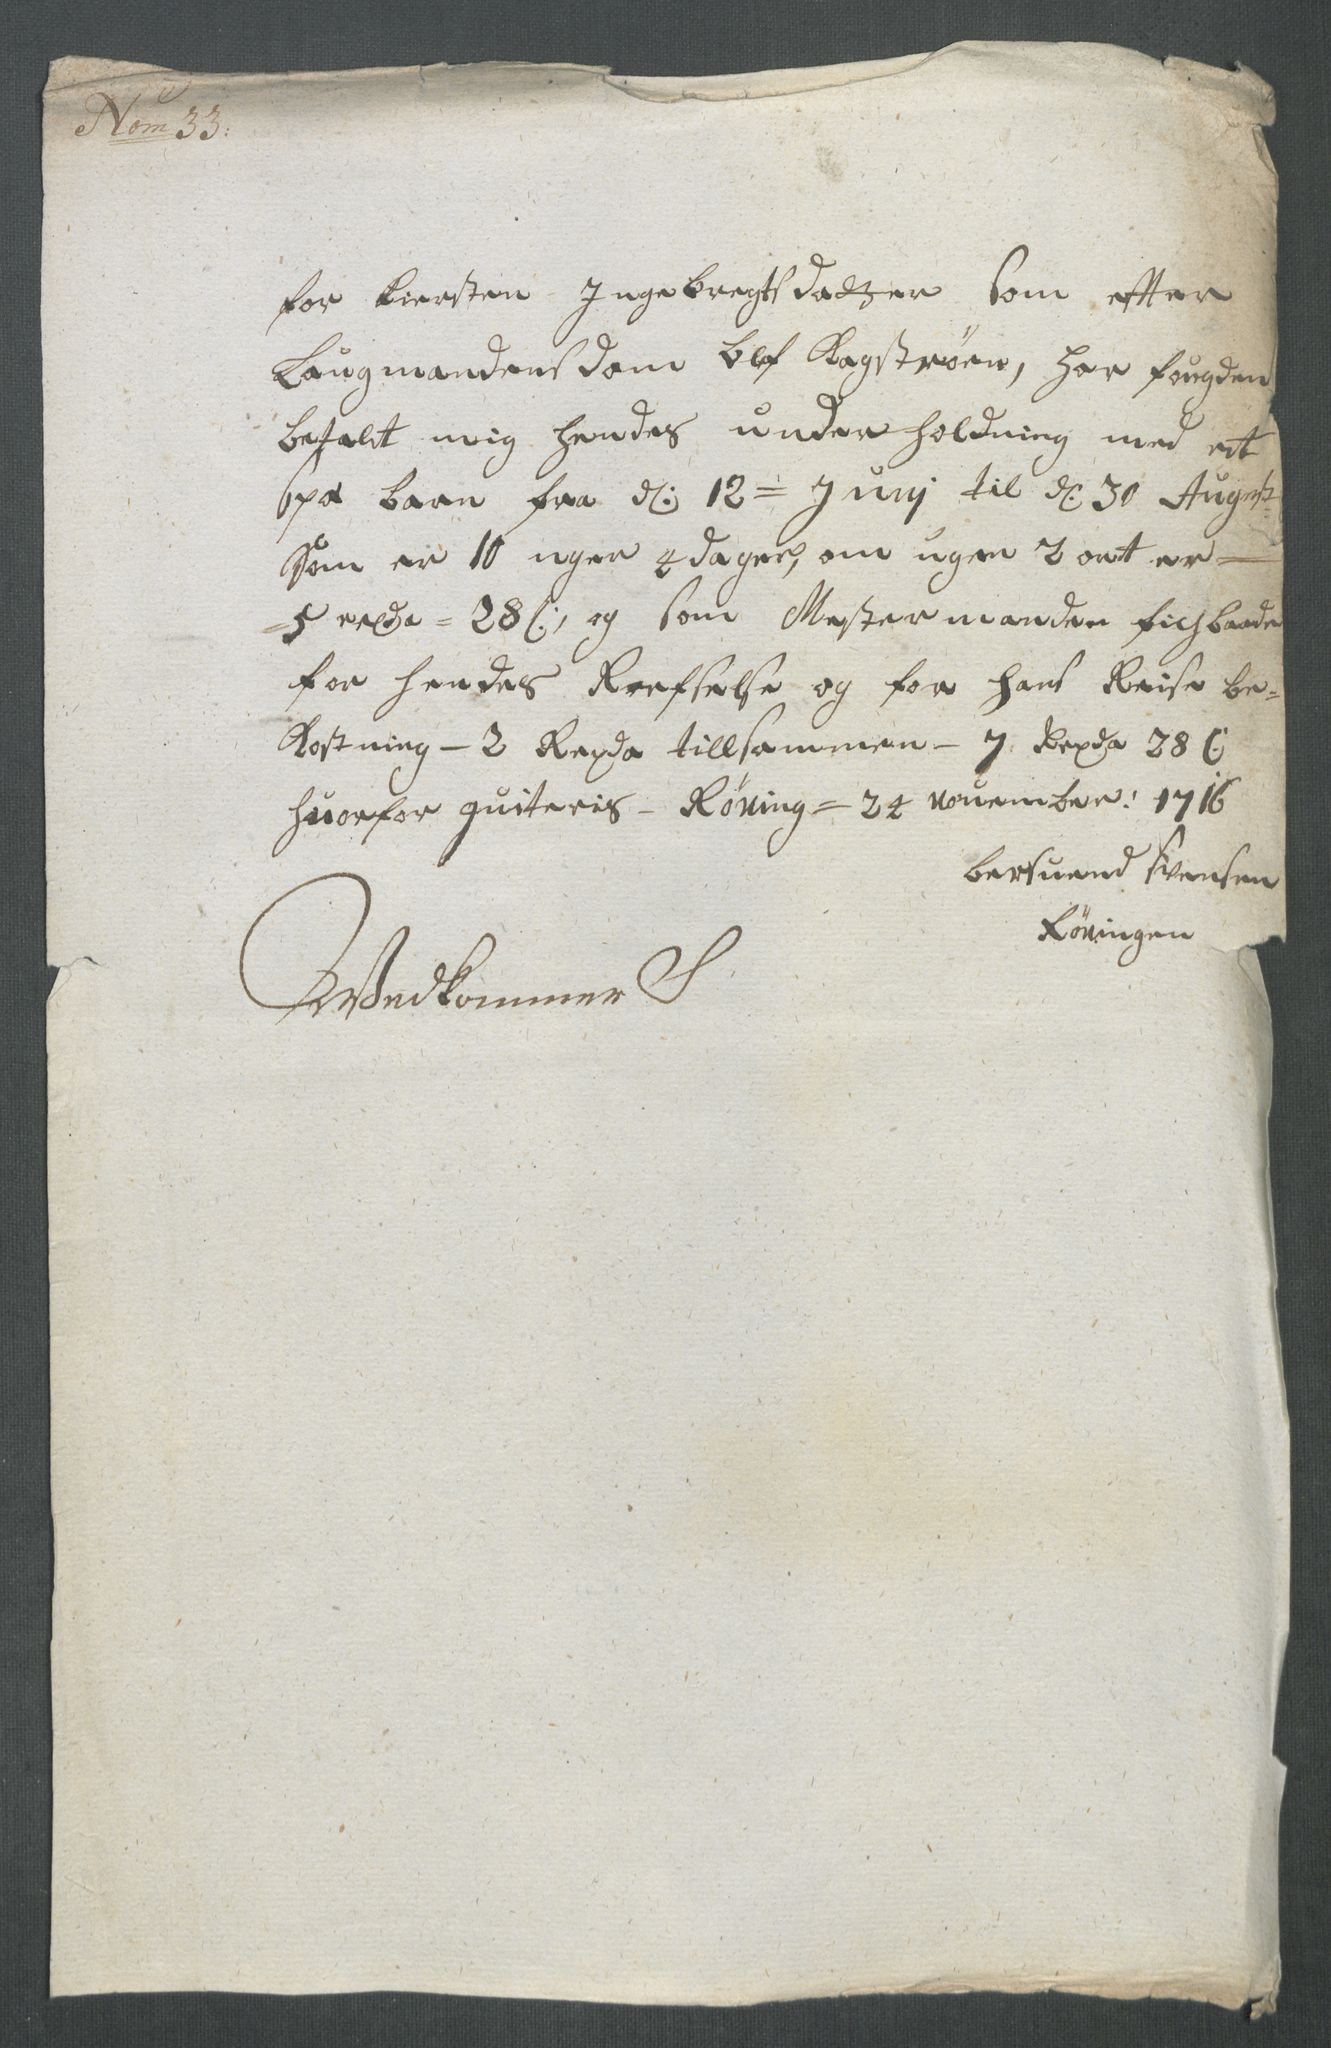 Nom 33:
for Kiersten Ingebregtsdatter som efter
Laugmandens dom blef Kagstrøen, har fougden
betalt mig hendes underholdning med eit
spæ barn fra d: 12= Junj til d: 30 August
Som er 10 uger 4 dager, om ugen 2 ort er —
= 5 rexda = 28 s:, og som Mestermanden fich baade
for hendes Reefselse og for hans Reise be=
kostning — 2 Rexda tillsammen — 7 Rexda 28 s:
huorfor quiteris — Røning = 24 Nouember: 1716
bersuend Svensen
Røningen
Vedkommer S